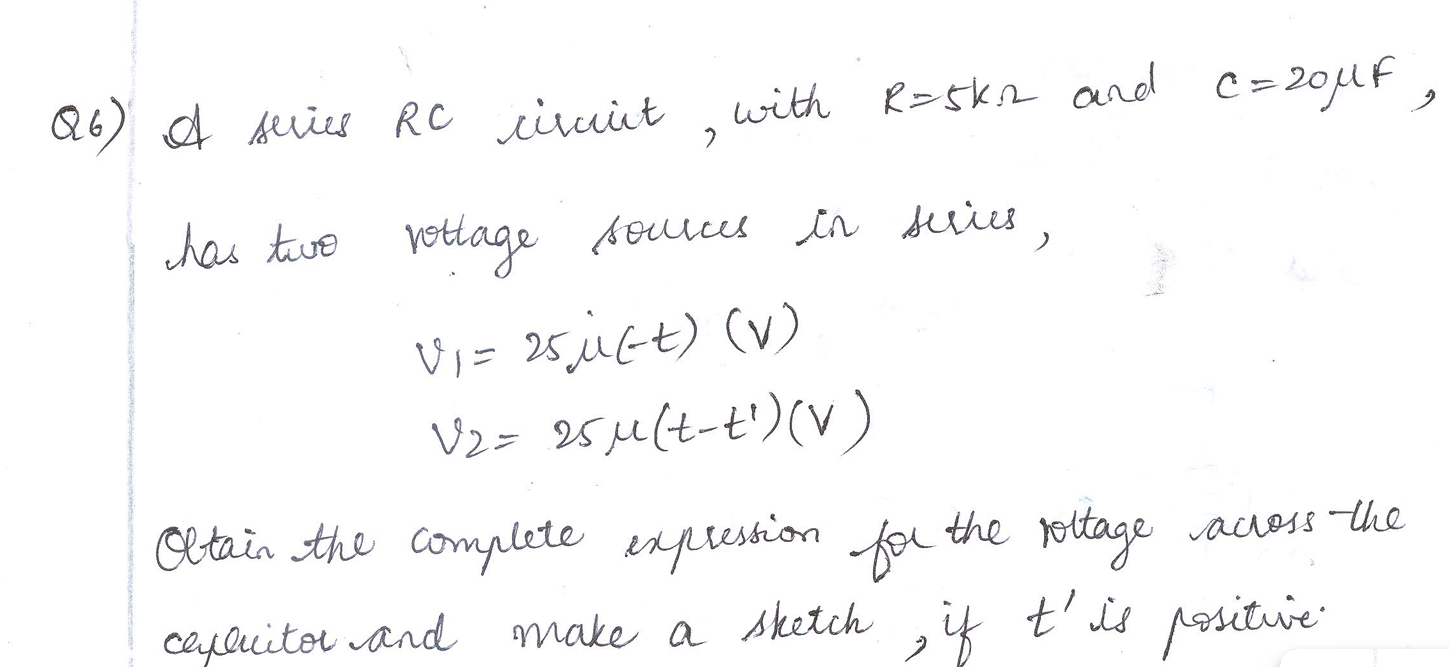 Q6) A series RC circuit, with R=5kΩ and C=20μF,
has two voltage sources in series,
V1= 25μ(-t) (V)
V2= 25μ(t-t')(V)
Obtain the complete expression for the voltage across the
capacitor and make a sketch, if t' is positive.